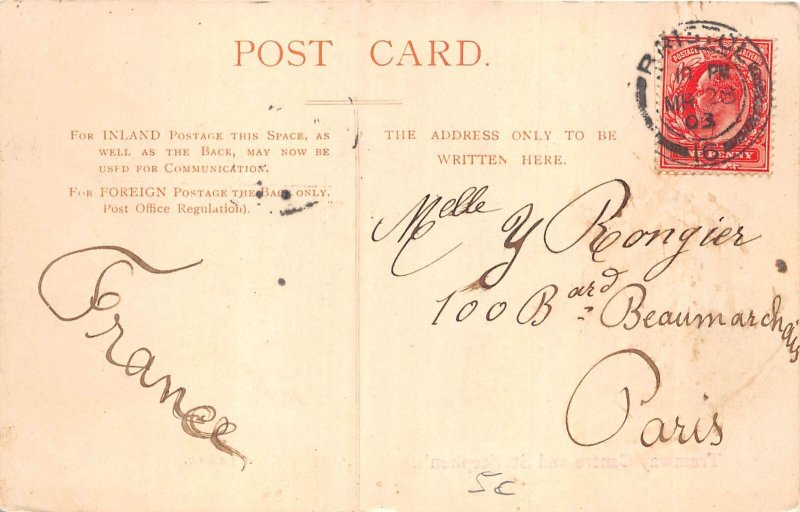 POST CARD.
FOR INLAND POSTAGE THIS SPACE, AS
WELL AS THE BACK, MAY NOW BE
USED FOR COMMUNICATION.
FOR FOREIGN POSTAGE THE BACK ONLY.
Post Office Regulation).
THE ADDRESS ONLY TO BE
WRITTEN HERE.
BRISTOL
PM
MR 28
03
16
POSTAGE
PENNY
Melle Y Rongier
100 Bard Beaumarchais
Paris
France
5c